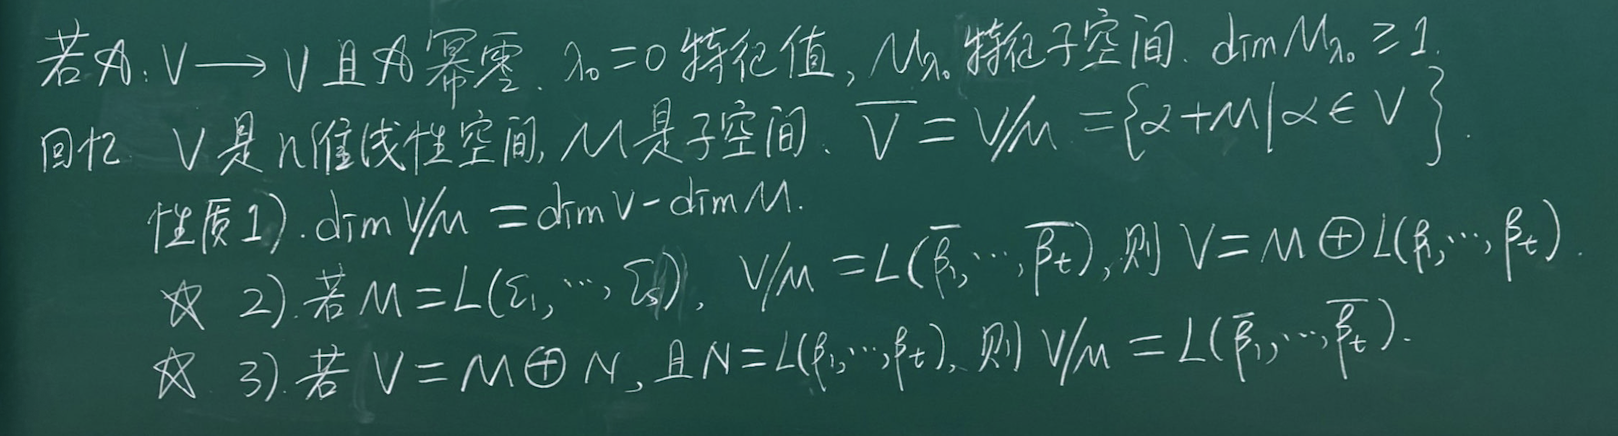 若𝒜: V → V 且 𝒜 幂零. λ₀=0 特征值, M_{λ₀} 特征子空间. dim M_{λ₀} ≥ 1.
回忆 V是n维线性空间, M是子空间. V̅ = V/M = {α+M | α∈V}.
性质1). dim V/M = dim V - dim M.
☆ 2). 若 M = L(ε₁, ⋯, εₛ), V/M = L(β̅₁, ⋯, β̅ₜ), 则 V = M ⊕ L(β₁, ⋯, βₜ).
☆ 3). 若 V = M ⊕ N, 且 N = L(β₁, ⋯, βₜ), 则 V/M = L(β̅₁, ⋯, β̅ₜ).